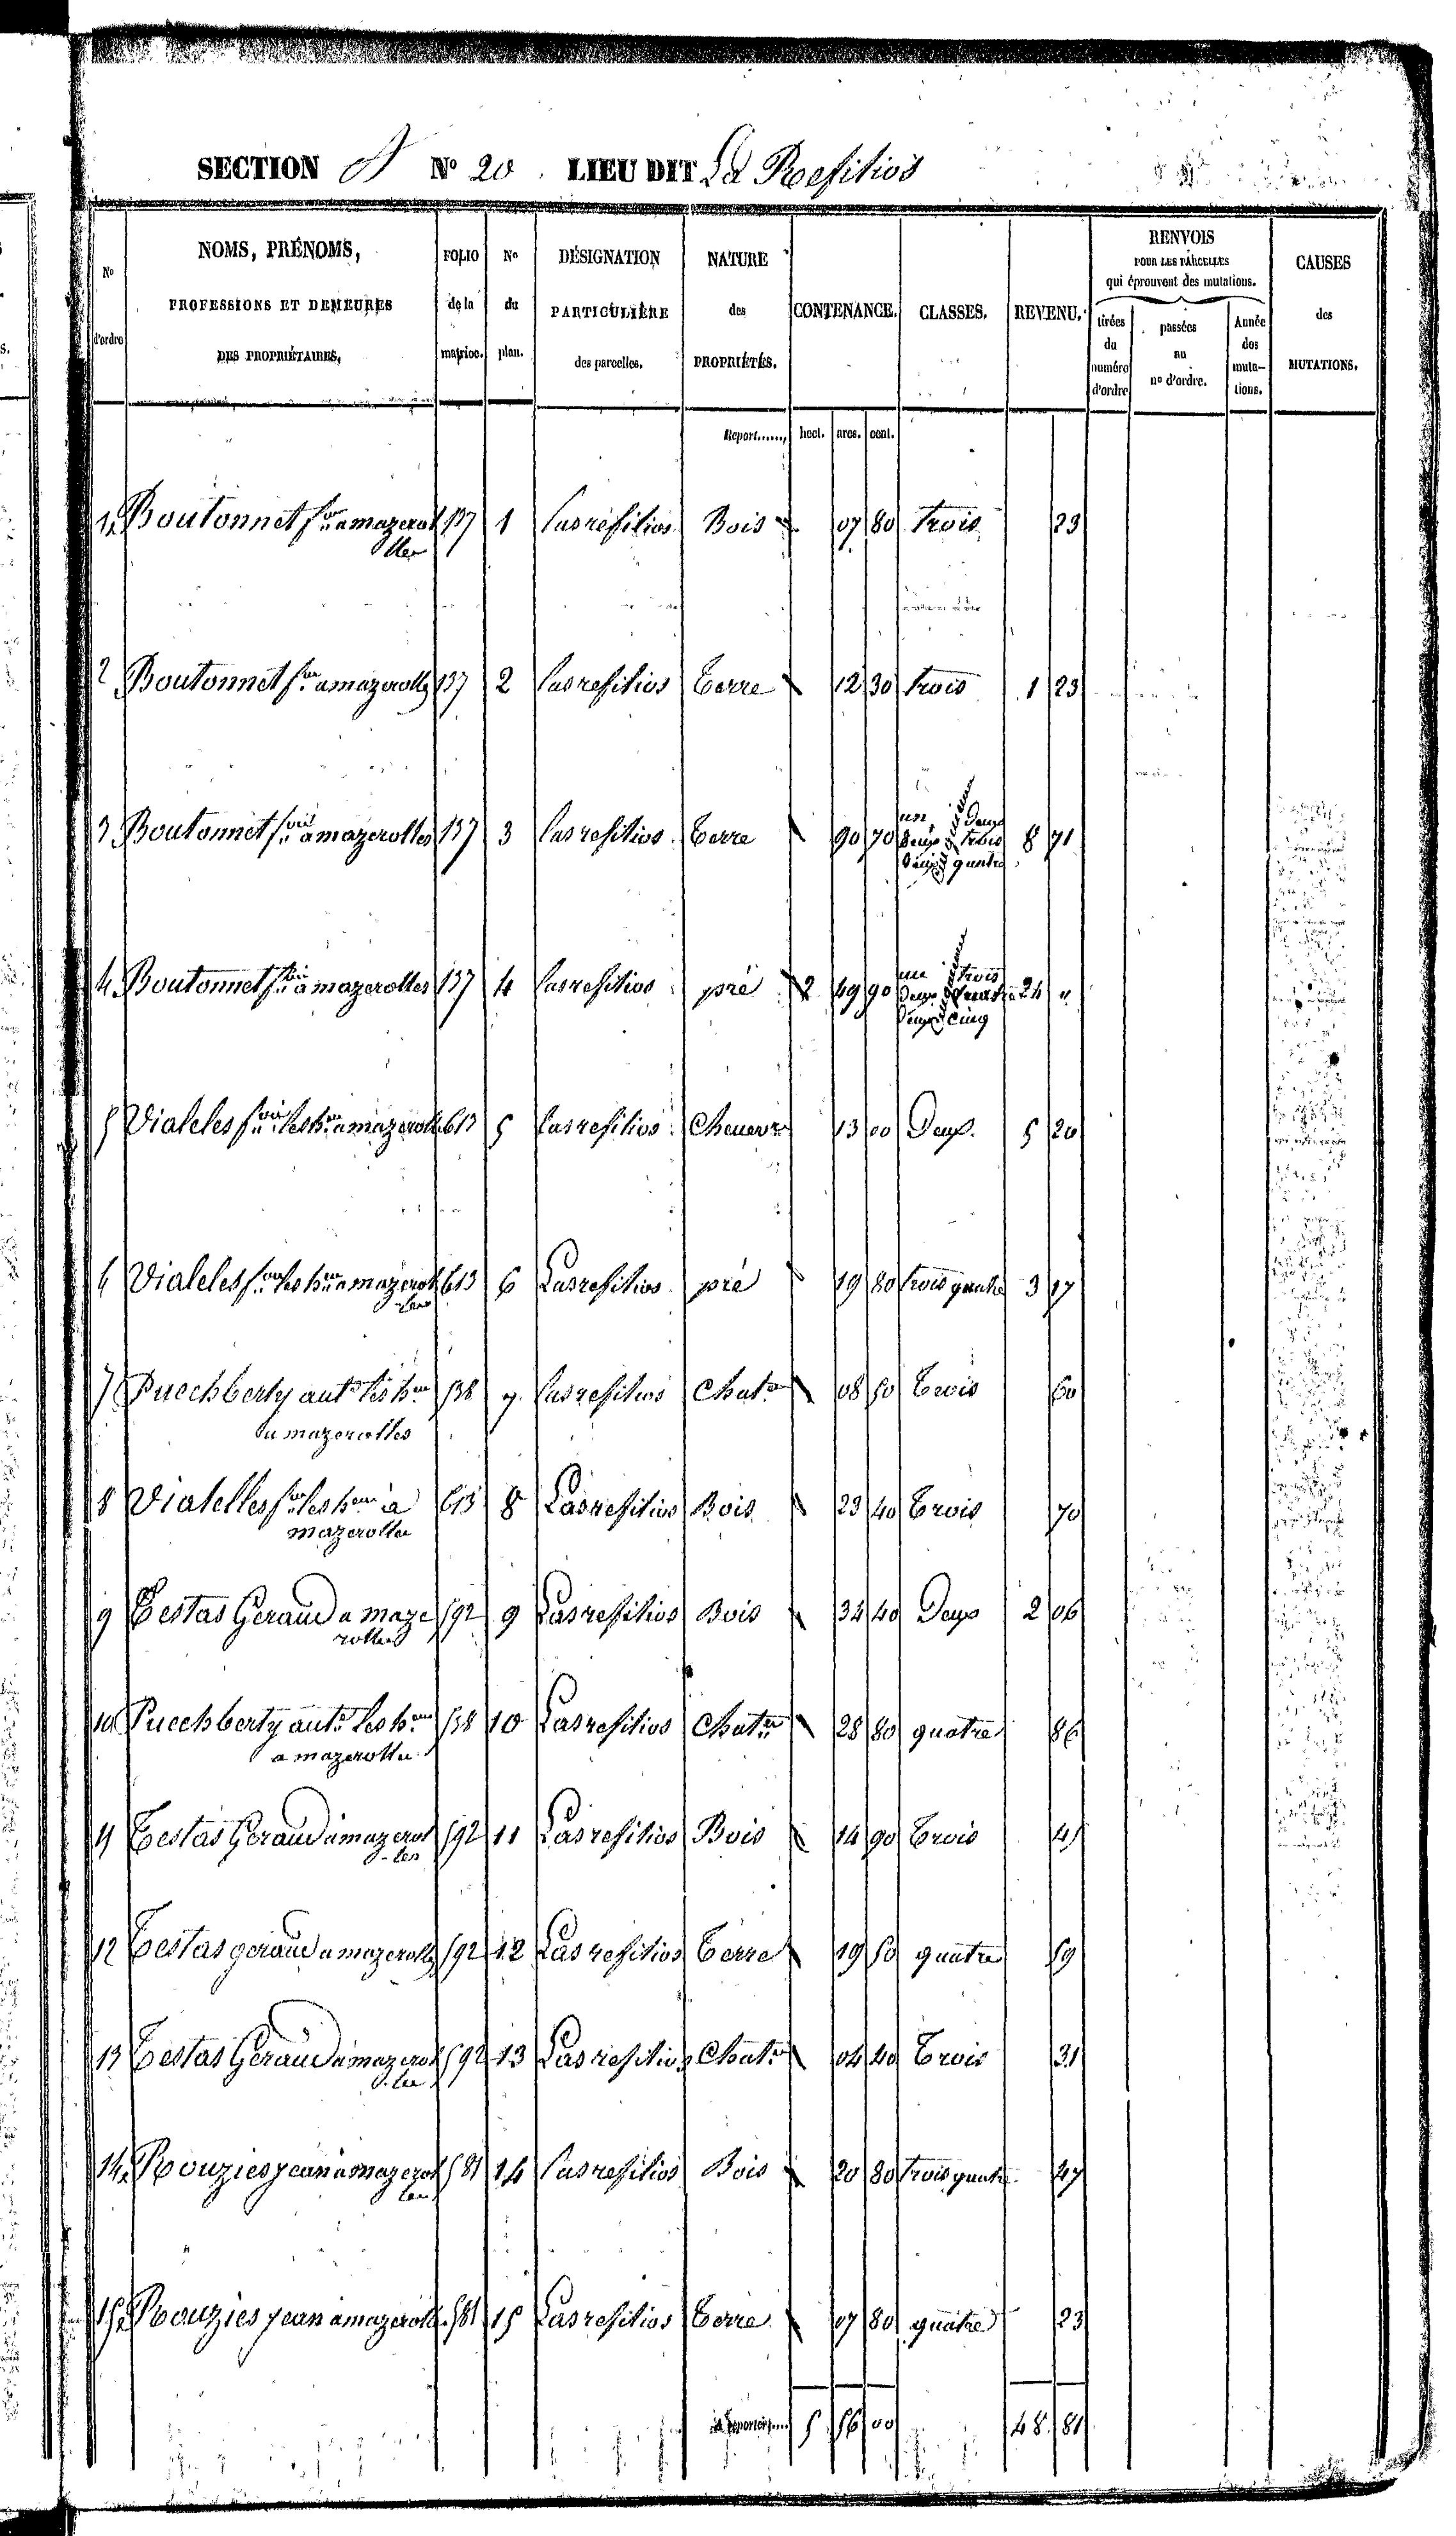 SECTION A N° 20. LIEU DIT La Refilios
N° d'ordre
NOMS, PRÉNOMS, PROFESSIONS ET DEMEURES DES PROPRIÉTAIRES.
FOLIO de la matrice.
N° du plan.
DÉSIGNATION PARTICULIÈRE des parcelles.
NATURE des PROPRIÉTÉS.
CONTENANCE.
CLASSES.
REVENU.
RENVOIS POUR LES PARCELLES qui éprouvent des mutations.
tirées du numéro d'ordre
passées au n° d'ordre.
Année des muta-tions.
CAUSES des MUTATIONS.
Report......, hect. ares. cent.
1 Boutonnet fois a mazerol 137 1 Lasrefilios Bois 07 80 trois 23
lles
2 Boutonnet fois a mazerolles 137 2 Lasrefilios Terre 12 30 trois 1 23
3 Boutonnet fois a mazerolles 137 3 Lasrefilios Terre 90 70 un deux trois quatre 8 71
4 Boutonnet fois a mazerolles 137 4 Lasrefilios pré 2 49 90 un deux trois quatre cinq 24 "
5 Vialeles fois les hers a mazerolle 613 5 Lasrefilios Chenevr 13 00 Deux. 5 20
6 Vialeles fois les hers a mazerol 613 6 Lasrefilios pré 19 80 trois quatre 3 17
-les
7 Puechberty ant. les hers 538 7 Lasrefilios Chat. 08 50 Trois 60
a mazerolles
8 Vialelles fois les hers à 613 8 Lasrefilios Bois 23 40 Trois 70
mazerolles
9 Testas Geraud a maze 592 9 Lasrefilios Bois 34 40 Deux 2 06
rolles
10 Puechberty ant. les hers 538 10 Lasrefilios Chat. 28 80 quatre 86
a mazerolles
11 Testas Geraud à mazerol 592 11 Lasrefilios Bois 14 90 Trois 45
-les
12 Testas geraud a mazerolles 592 12 Lasrefilios Terre 19 50 quatre 59
13 Testas Geraud a mazerol 592 13 Lasrefilios Chat. 04 40 Trois 31
-les
14 Rouzies jean à mazerol 581 14 Lasrefilios Bois 20 80 trois quatre 47
les
15 Rouzies jean à mazerolle 581 15 Lasrefilios Terre 07 80 quatre 23
A Reporter..... 5 56 00 48 81